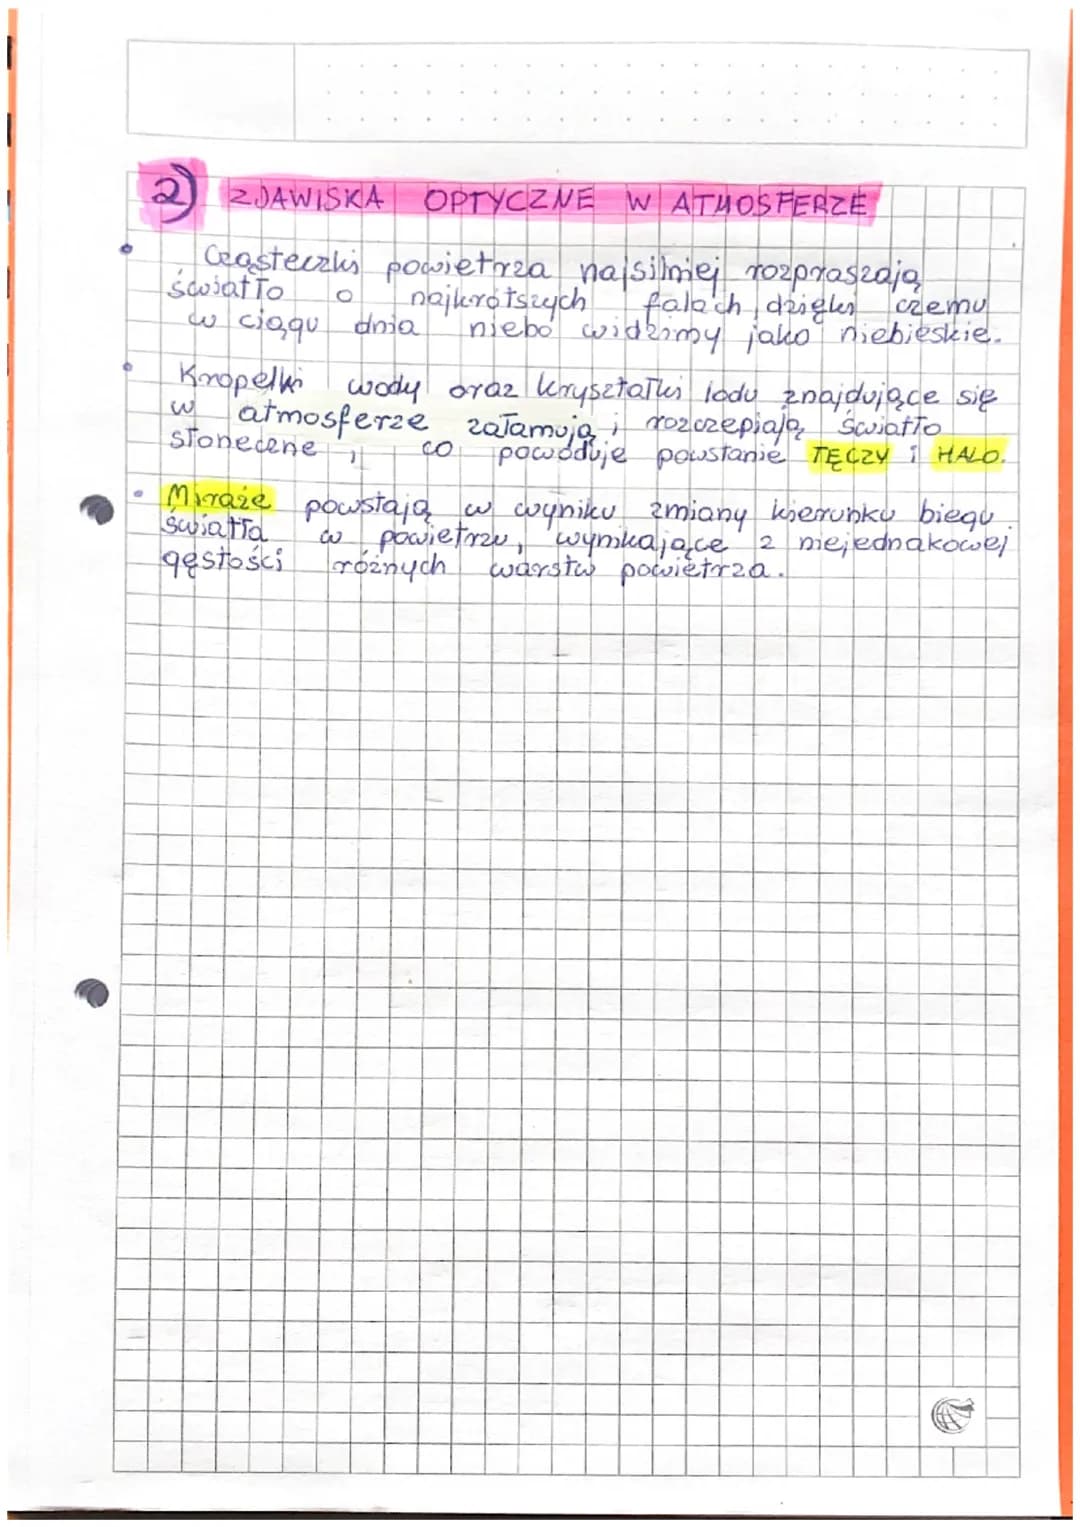 2) ZJAWISKA OPTYCZNE W ATMOSFERZE
• Cząsteczki powietrza najsilniej rozpraszają
światło o najkrótszych falach, dzięki czemu
w ciągu dnia niebo widzimy jako niebieskie.
• Kropelki wody oraz kryształki lodu znajdujące się
w atmosferze załamują i rozczepiają światło
słoneczne, co powoduje powstanie TĘCZY i HALO.
• Miraże powstają w wyniku zmiany kierunku biegu
światła w powietrzu, wynikające z niejednakowej
gęstości różnych warstw powietrza.